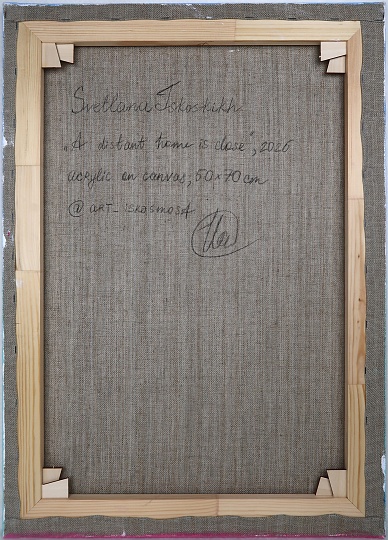 Svetlana Iskoskikh
„A distant home is close", 2026
acrylic on canvas, 50x70cm
@ ART_ISKOSMOSA